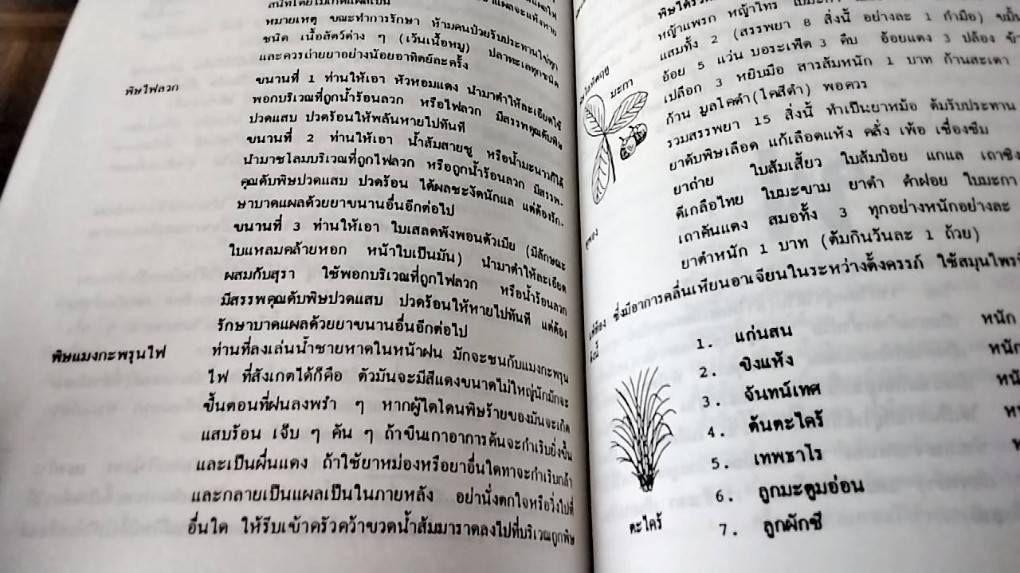 สนิทโดยไม่เกิดแผลเป็น
หมายเหตุ ขณะทำการรักษา ห้ามคนป่วยรับประทานไข่ทุก
ชนิด เนื้อสัตว์ต่าง ๆ (เว้นเนื้อหมู) ปลาทะเลทุกชนิด
และควรถ่ายยาอย่างน้อยอาทิตย์ละครั้ง
พิษไฟลวก
ขนานที่ 1 ท่านให้เอา หัวหอมแดง นำมาตำให้ละเอียดใช้
พอกบริเวณที่ถูกน้ำร้อนลวก หรือไฟลวก มีสรรพคุณดับพิษ
ปวดแสบ ปวดร้อนให้พลันหายไปทันที
ขนานที่ 2 ท่านให้เอา น้ำส้มสายชู หรือน้ำมะนาวก็ได้
นำมาชโลมบริเวณที่ถูกไฟลวก หรือถูกน้ำร้อนลวก มีสรรพ-
คุณดับพิษปวดแสบ ปวดร้อน ได้ผลชะงัดนักแล แต่ต้องรัก-
ษาบาดแผลด้วยยาขนานอื่นอีกต่อไป
ขนานที่ 3 ท่านให้เอา ใบเสลดพังพอนตัวเมีย (มีลักษณะ
ใบแหลมคล้ายหอก หน้าใบเป็นมัน) นำมาตำให้ละเอียด
ผสมกับสุรา ใช้พอกบริเวณที่ถูกไฟลวก หรือน้ำร้อนลวก
มีสรรพคุณดับพิษปวดแสบ ปวดร้อนให้หายไปทันที แต่ต้อง
รักษาบาดแผลด้วยยาขนานอื่นอีกต่อไป
พิษแมงกะพรุนไฟ
ท่านที่ลงเล่นน้ำชายหาดในหน้าฝน มักจะชนกับแมงกะพรุน
ไฟ ที่สังเกตได้ก็คือ ตัวมันจะมีสีแดงขนาดไม่ใหญ่นักมักจะ
ขึ้นตอนที่ฝนลงพรำ ๆ หากผู้ใดโดนพิษร้ายของมันจะเกิด
แสบร้อน เจ็บ ๆ คัน ๆ ถ้าขืนเกาอาการคันจะกำเริบยิ่งขึ้น
และเป็นผื่นแดง ถ้าใช้ยาหม่องหรือยาอื่นใดทาจะกำเริบกล้า
และกลายเป็นแผลเป็นในภายหลัง อย่านั่งตกใจหรือวิ่งไปที่
อื่นใด ให้รีบเข้าครัวคว้าขวดน้ำส้มมาราดลงไปที่บริเวณถูกพิษ
หญ้าแพรก หญ้าไทร
แสมทั้ง 2 (สรรพยา 8 สิ่งนี้ อย่างละ 1 กำมือ)
อ้อย 5 แว่น บอระเพ็ด 3 คืบ อ้อยแดง 3 ปล้อง
เปลือก 3 หยิบมือ สารส้มหนัก 1 บาท ก้านสะเดา
ก้าน มูลโคดำ(โคสีดำ) พอควร
รวมสรรพยา 15 สิ่งนี้ ทำเป็นยาหม้อ ต้มรับประทาน
ยาดับพิษเลือด แก้เลือดแห้ง คลั่ง เพ้อ เชื่องซึม
ยาถ่าย ใบส้มเสี้ยว ใบส้มป่อย แกแล เถาชิง
ดีเกลือไทย ใบมะขาม ยาดำ คำฝอย ใบมะกา
เถาคันแดง สมอทั้ง 3 ทุกอย่างหนักอย่างละ
ยาดำหนัก 1 บาท (ต้มกินวันละ 1 ถ้วย)
มะกา
ซึ่งมีอาการคลื่นเหียนอาเจียนในระหว่างตั้งครรภ์ ใช้สมุนไพร
1. แก่นสน หนัก
2. ขิงแห้ง หนัก
3. จันทน์เทศ
4. ต้นตะไคร้
5. เทพธาโร
6. ลูกมะตูมอ่อน
7. ลูกผักชี
ตะไคร้